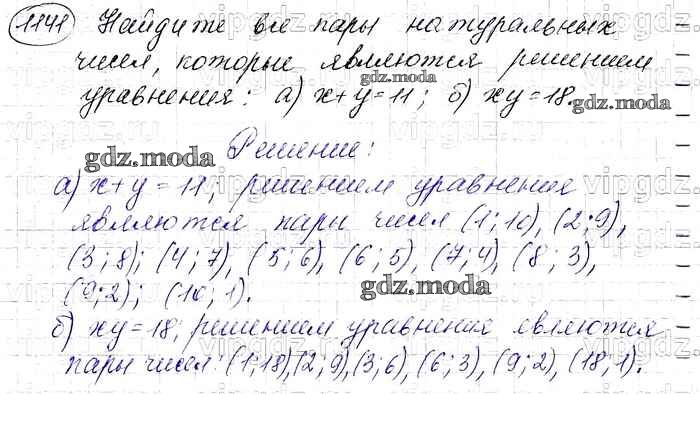 1141 Найдите все пары натуральных
чисел, которые являются решением
уравнения: а) x+y=11; б) xy=18.
Решение:
а) x+y=11, решением уравнения
являются пары чисел (1;10), (2;9),
(3;8); (4;7), (5;6), (6;5), (7;4), (8;3),
(9;2); (10;1).
б) xy=18, решением уравнения являются
пары чисел: (1;18),(2;9),(3;6),(6;3),(9;2),(18;1).
gdz.moda
gdz.moda
gdz.moda
gdz.moda
vipgdz.ru